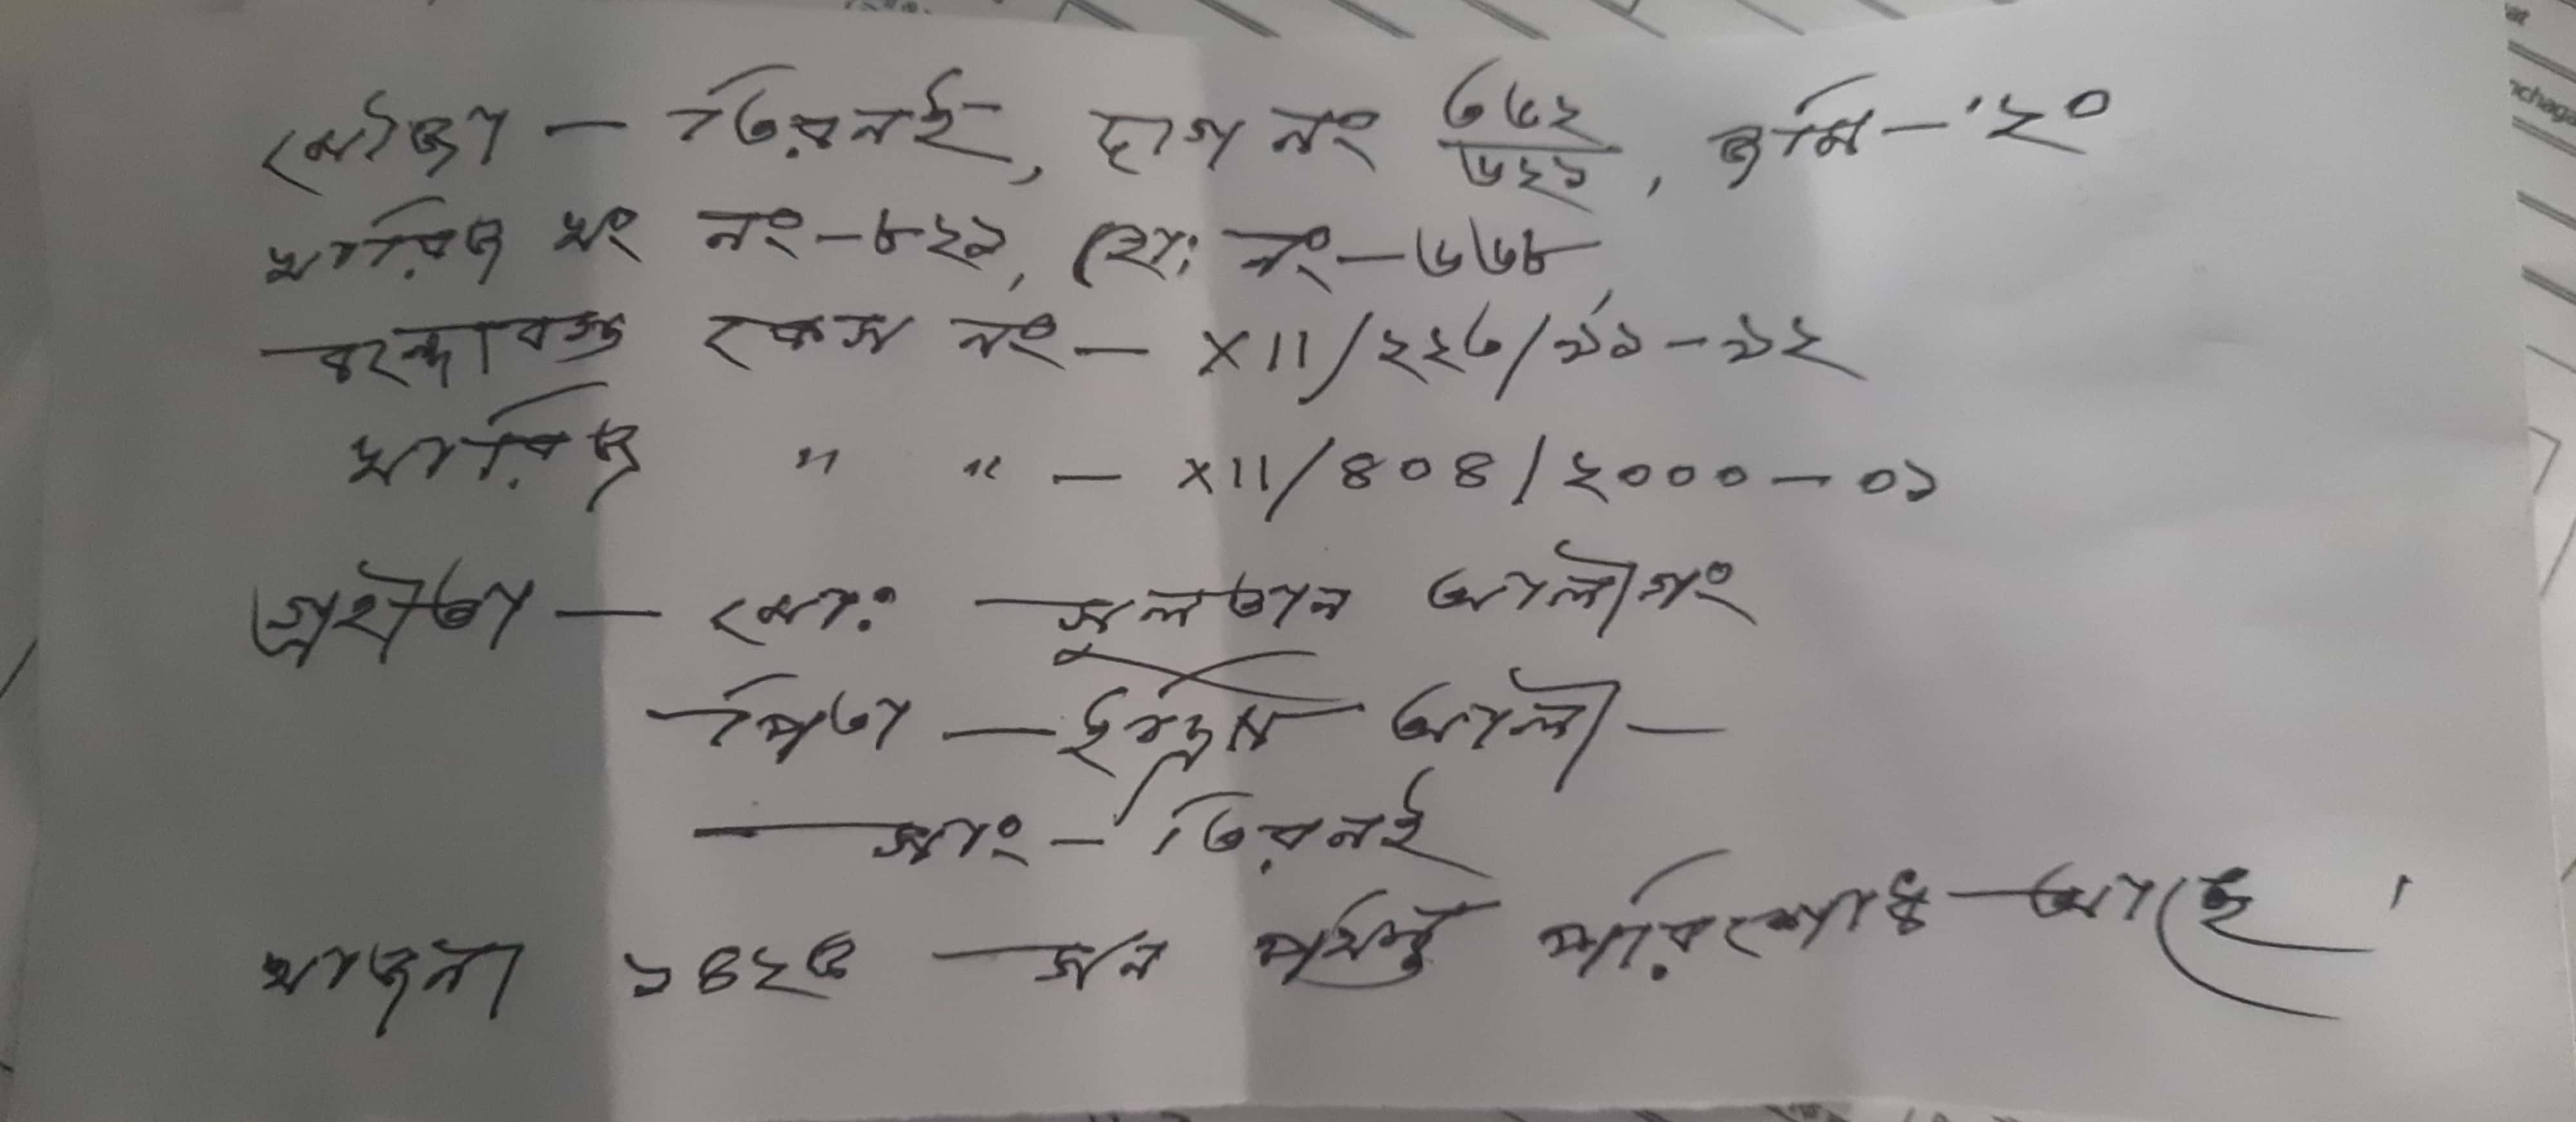 মৌজা – তিরনই, দাগ নং ৩৬২/৬২১, জমি – '২০
খারিজ খং নং – ৮২৯, হোঃ নং – ৬৬৮
বন্দোবস্ত কেস নং – XII/২২৬/৯১-৯২
খারিজ " " – XII/৪০৪/২০০০-০১
গ্রহীতা – মোঃ সুলতান আলী গং
পিতা – ইদ্রিস আলী –
সাং – তিরনই
খাজনা ১৪২৫ সন পর্যন্ত পরিশোধ আছে।